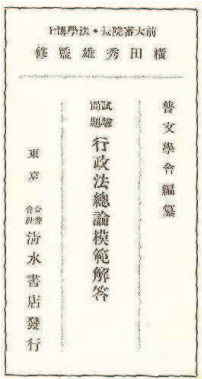 前大審院長・法學博士
橫田秀雄監修
普文學會編纂
試驗問題
行政法總論模範解答
東京
合資會社
清水書店發行